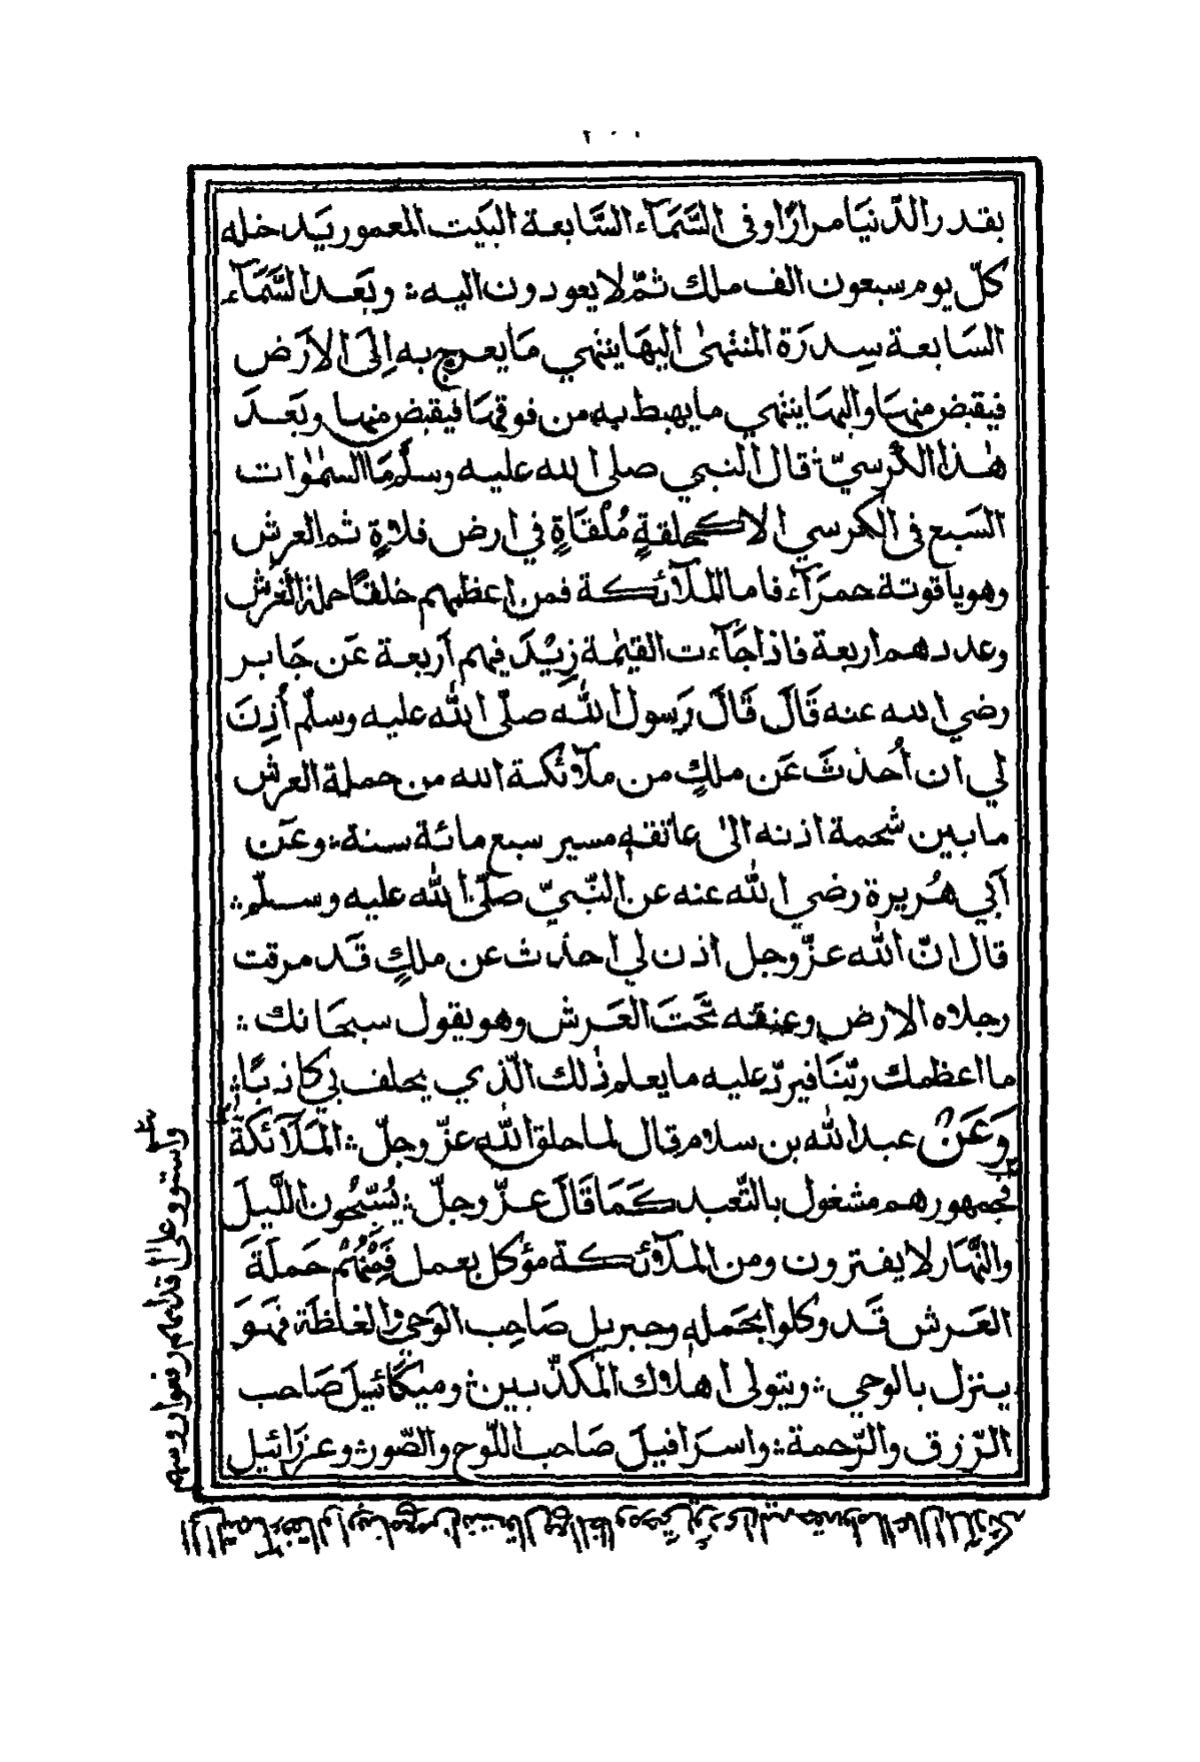 بقدر الدّنيا مرارًا وفي السَّمَآء السَّابعة البَيت المعمور يَدخله
كلّ يوم سبعون الف ملك ثمّ لا يعودون اليه ؞ وبَعد السَّمَآء
السَابعة سِدرَة المنتهىٰ اليهَا ينتهي مَا يعرج به اِلىَ الارَض
فيقبض منهَا واليهَا ينتهي ما يهبط به من فوقهَا فيقبض منها وبَعدَ
هٰذا الكُرسيّ ؞ قال النبي صلى الله عليه وسلّم مَا السمٰوٰات
السَبع في الكرسي الا كحلقةٍ مُلقَاةٍ في ارض فلاةٍ ثم العرش
وهو ياقوتة حمرَآء فاما الملآئكة فمن اعظمهم خلقًا حملة العَرش
وعددهم اربعة فاذا جَآءت القيٰمة زِيْدَ فيهم أربعة عَن جَابر
رضي الله عنه قَالَ قَالَ رَسول اللّٰه صلّى اللّٰه عليه وسلّم أذِنَ
لي ان أُحدّثَ عَن ملكٍ من ملآئكة الله من حملة العرش
ما بين شحمة اذنه الىٰ عاتقه مسير سبع مائة سنة ؞ وعَن
اَبي هُريرة رضي اللّٰه عنه عن النّبيّ صلّى اللّٰه عليه وسلّم ؞
قال انّ اللّٰه عزّ وجل اذن لي احدّث عن ملكٍ قَد مرقت
رجلاه الارض وعنقه تحَتَ العَرش وهو يقول سبحَانك ؞
ما اعظمك ربّنَا فيردّ عليه ما يعلم ذٰلك الّذي يحلف بي كاذبًا ؞
وَعَنْ عبد اللّٰه بن سلام قال لما خلق اللّٰه عزّ وجلّ ؞ المَلَآئكةَ
فجمهورهم مشغول بالتّعبد كَمَا قَالَ عزّ وجلّ ؞ يُسَبِّحُون اللَّيلَ
والنَّهَار لا يفترون ومن الملآئكة مؤكل بعمل فَمِنْهُمْ حَملَةَ
العَرش قَد وكلوا بحَمله وجبريل صَاحِب الوَحي والغلظَة فهَوَ
ينزل بالوحي ؞ ويتولى اهلاك المكذّبين ؞ وميكَائيلَ صَاحب
الرّزق والرّحمة ؞ واسرَافيلَ صَاحب اللّوح والصّور ؞ وعزرَائيل
واستووا علىٰ اقدامهم رفعوا رؤسهم